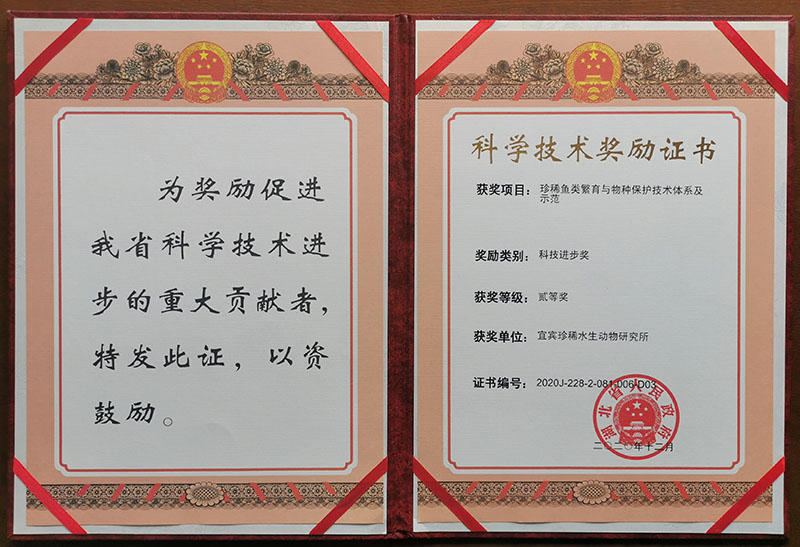 为奖励促进
我省科学技术进
步的重大贡献者，
特发此证，以资
鼓励。
科学技术奖励证书
获奖项目：珍稀鱼类繁育与物种保护技术体系及
示范
奖励类别：科技进步奖
获奖等级：贰等奖
获奖单位：宜宾珍稀水生动物研究所
证书编号：2020J-228-2-081-006-D03
湖北省人民政府
二〇二〇年十二月